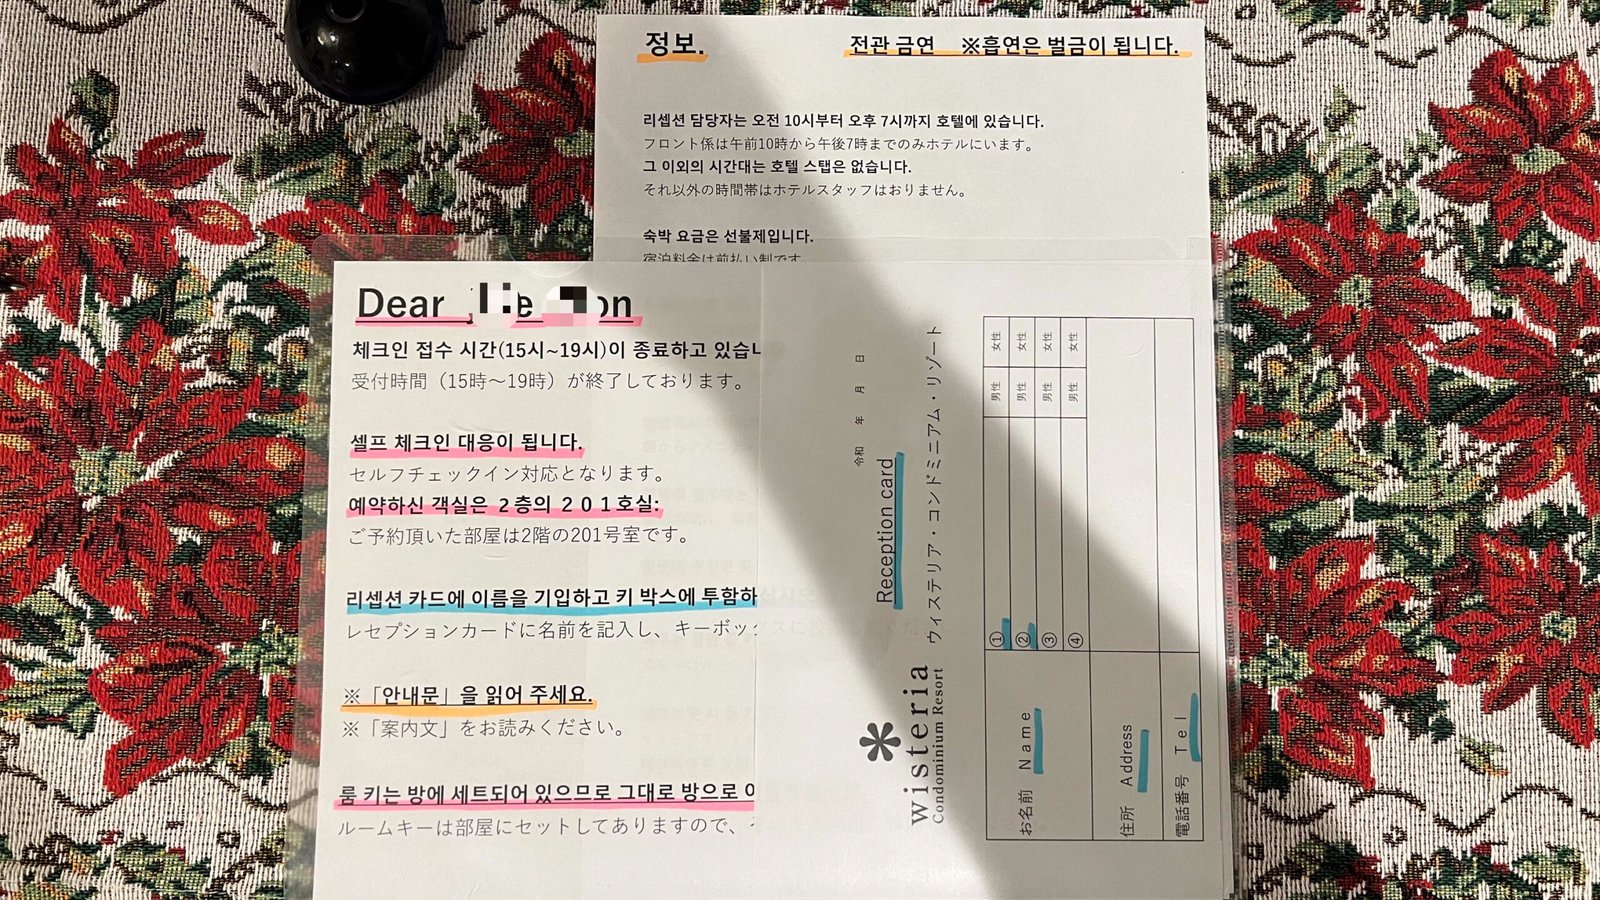 정보.
전관 금연 ※흡연은 벌금이 됩니다.
리셉션 담당자는 오전 10시부터 오후 7시까지 호텔에 있습니다.
フロント係は午前10時から午後7時までのみホテルにいます。
그 이외의 시간대는 호텔 스탭은 없습니다.
それ以外の時間帯はホテルスタッフはおりません。
숙박 요금은 선불제입니다.
宿泊料金は前払い制です
Dear
체크인 접수 시간(15시~19시)이 종료하고 있습니
受付時間（15時～19時）が終了しております。
셀프 체크인 대응이 됩니다.
セルフチェックイン対応となります。
예약하신 객실은 2층의 201호실:
ご予約頂いた部屋は2階の201号室です。
리셉션 카드에 이름을 기입하고 키 박스에 투함하
レセプションカードに名前を記入し、キーボック
※「안내문」을 읽어 주세요.
※「案内文」をお読みください。
룸 키는 방에 세트되어 있으므로 그대로 방으로
ルームキーは部屋にセットしてありますので、
令和 年 月 日
Reception card
wisteria
Condominium Resort
ウィステリア・コンドミニアム・リゾート
お名前 Name
① 男性 女性
② 男性 女性
③ 男性 女性
④ 男性 女性
住所 Address
電話番号 Tel